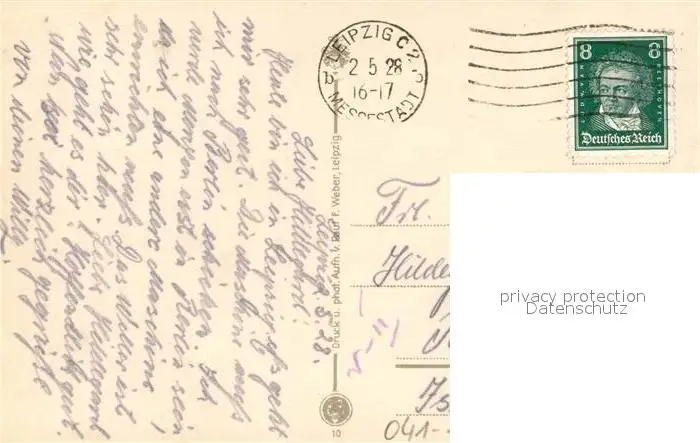 LEIPZIG C 2
b
2 5 28
16-17
MESSESTADT
8 8
LUDW. VAN BEETHOVEN
Deutsches Reich
Leipzig, 2.5.28.
Liebe Hildegard!
Heute bin ich in Leipzig. Es geht
mir sehr gut. Die Maschine muß
ich nach Berlin schicken. Ich
werde morgen erst in Berlin sein
da ich eine andere Maschine
erreichen muß. Das Wetter ist
sehr schön hier. Liebe Hildegard
wie geht es der gut.
herzlich gegrüßt
von deinem Willi
Druck u. phot. Aufn. v. Rud. F. Weber, Leipzig
Frl.
Hilde
10
041-
privacy protection
Datenschutz